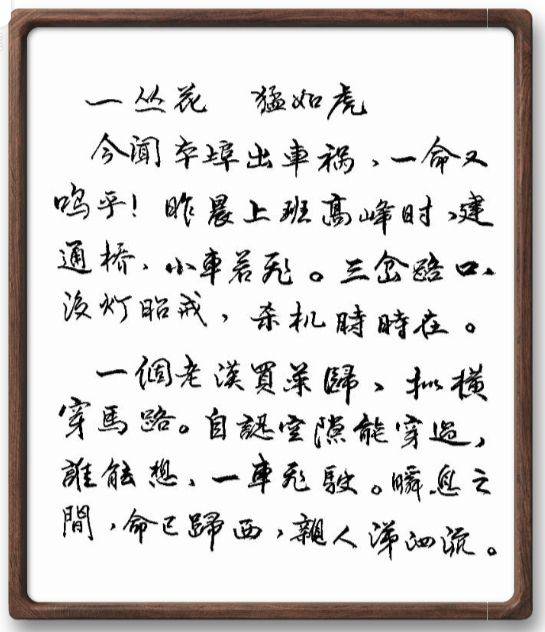 一丛花 猛如虎
今闻本埠出車祸、一命又
呜乎！昨晨上班高峰时、建
通桥、小車若飛。三岔路口、
没灯昭戒，杀机時時在。
一個老漢買菜歸、枞横
穿馬路。自認空隙能穿過，
誰能想、一車飛駛。瞬息之
間，命已歸西，親人涕泗流。